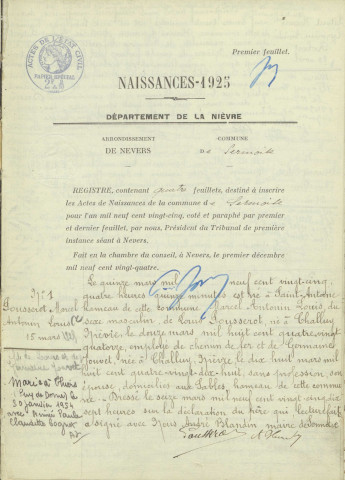 Premier feuillet.
ACTES DE L'ETAT CIVIL
PAPIER SPÉCIAL
NAISSANCES-1925
DÉPARTEMENT DE LA NIÈVRE
ARRONDISSEMENT
DE NEVERS
COMMUNE
DE Sermoise
REGISTRE, contenant quatre feuillets, destiné à inscrire
les Actes de Naissances de la commune de Sermoise
pour l'an mil neuf cent vingt-cinq, coté et paraphé par premier
et dernier feuillet, par nous, Président du Tribunal de première
instance séant à Nevers.
Fait en la chambre du conseil, à Nevers, le premier décembre
mil neuf cent vingt-quatre.
Le quinze mars mil neuf cent vingt cinq,
quatre heures quinze minutes est né à Saint-Antoine
hameau de cette commune Marcel Antonin Louis, du
sexe masculin de Louis Gousserot, né à Challuy
Nièvre le douze mars mil huit cent quatre-vingt
quatorze, employé de chemin de fer et de Germaine
Jouvet, née à Challuy, Nièvre le dix huit mars mil
huit cent quatre-vingt-dix-huit sans profession, son
épouse, domiciliés aux Sables, hameau de cette commune
Dressé le seize mars mil neuf cent vingt cinq dix
sept heures sur la déclaration du père qui lecture faite
a signé avec Nous André Blandin maire de Sermoise
N° 1
Gousserot Marcel
Antonin Louis
15 mars 1925
Marié à Thiers
(Puy de Dôme) le
30 janvier 1954
avec Aimée Paule
Claudette